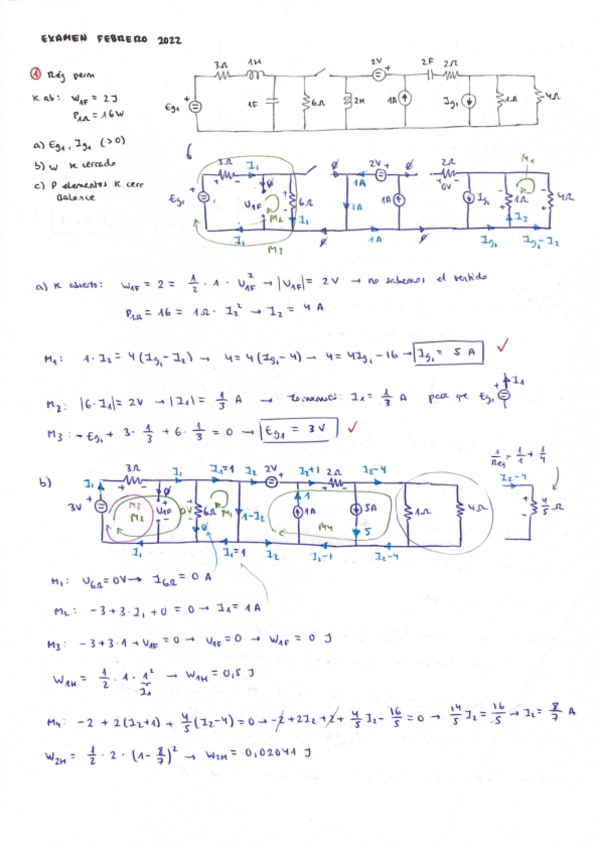 EXAMEN FEBRERO 2022
① Rég perm
K ab: W1F = 2J
P1Ω = 16W
a) Eg1, Ig1 (>0)
b) W K cerrado
c) P elementos K cerr
Balance
3Ω 1H 2V 2F 2Ω
Eg1 1F 6Ω 2H 1A Ig1 1Ω 4Ω
3Ω I1 ∅ 2V ∅ 2Ω M1
Eg1 U1F 6Ω 1A 1A 1A 0V Ig1 1Ω 4Ω
M2 I1 I2
I1 M3 ∅ 1A ∅ Ig1 Ig1-I2
a) K abierto: W1F = 2 = 1/2 · 1 · U1F² → |U1F| = 2V → no sabemos el sentido
P1Ω = 16 = 1Ω · I2² → I2 = 4 A
M1: 1·I2 = 4(Ig1-I2) → 4 = 4(Ig1-4) → 4 = 4Ig1-16 → Ig1 = 5 A ✓
M2: |6·I1| = 2V → |I1| = 1/3 A → Tomamos: I1 = 1/3 A para que Eg1 I1
M3: -Eg1 + 3·1/3 + 6·1/3 = 0 → Eg1 = 3V ✓
1/Req = 1/1 + 1/4
b) I1 3Ω I1 I1=1 I2 2V I2+1 2Ω I2-4
I2-4
3V M3 M2 U1F 0V 6Ω M1 1-I2 1 1A 5A 1Ω 4Ω 4/5 Ω
∅ M4 5
I1 I1=1 I2 I2-1 I2-4
M1: U6Ω = 0V → I6Ω = 0 A
M2: -3+3·I1+0 = 0 → I1 = 1A
M3: -3+3·1+U1F = 0 → U1F = 0 → W1F = 0 J
W1H = 1/2 · 1 · 1² → W1H = 0,5 J
I1
M4: -2 + 2(I2+1) + 4/5 (I2-4) = 0 → -2+2I2+2+4/5 I2 - 16/5 = 0 → 14/5 I2 = 16/5 → I2 = 8/7 A
W2H = 1/2 · 2 · (1-8/7)² → W2H = 0,02041 J